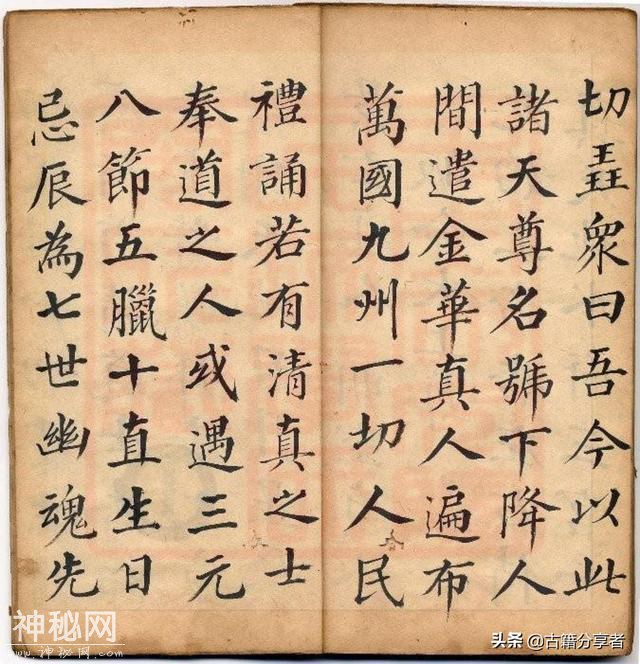 切衆曰吾今以此
諸天尊名號下降人
間遣金華真人遍布
萬國九州一切人民
禮誦若有清真之士
奉道之人或遇三元
八節五臘十直生日
忌辰為七世幽魂先
神秘网
头条 @古籍分享者